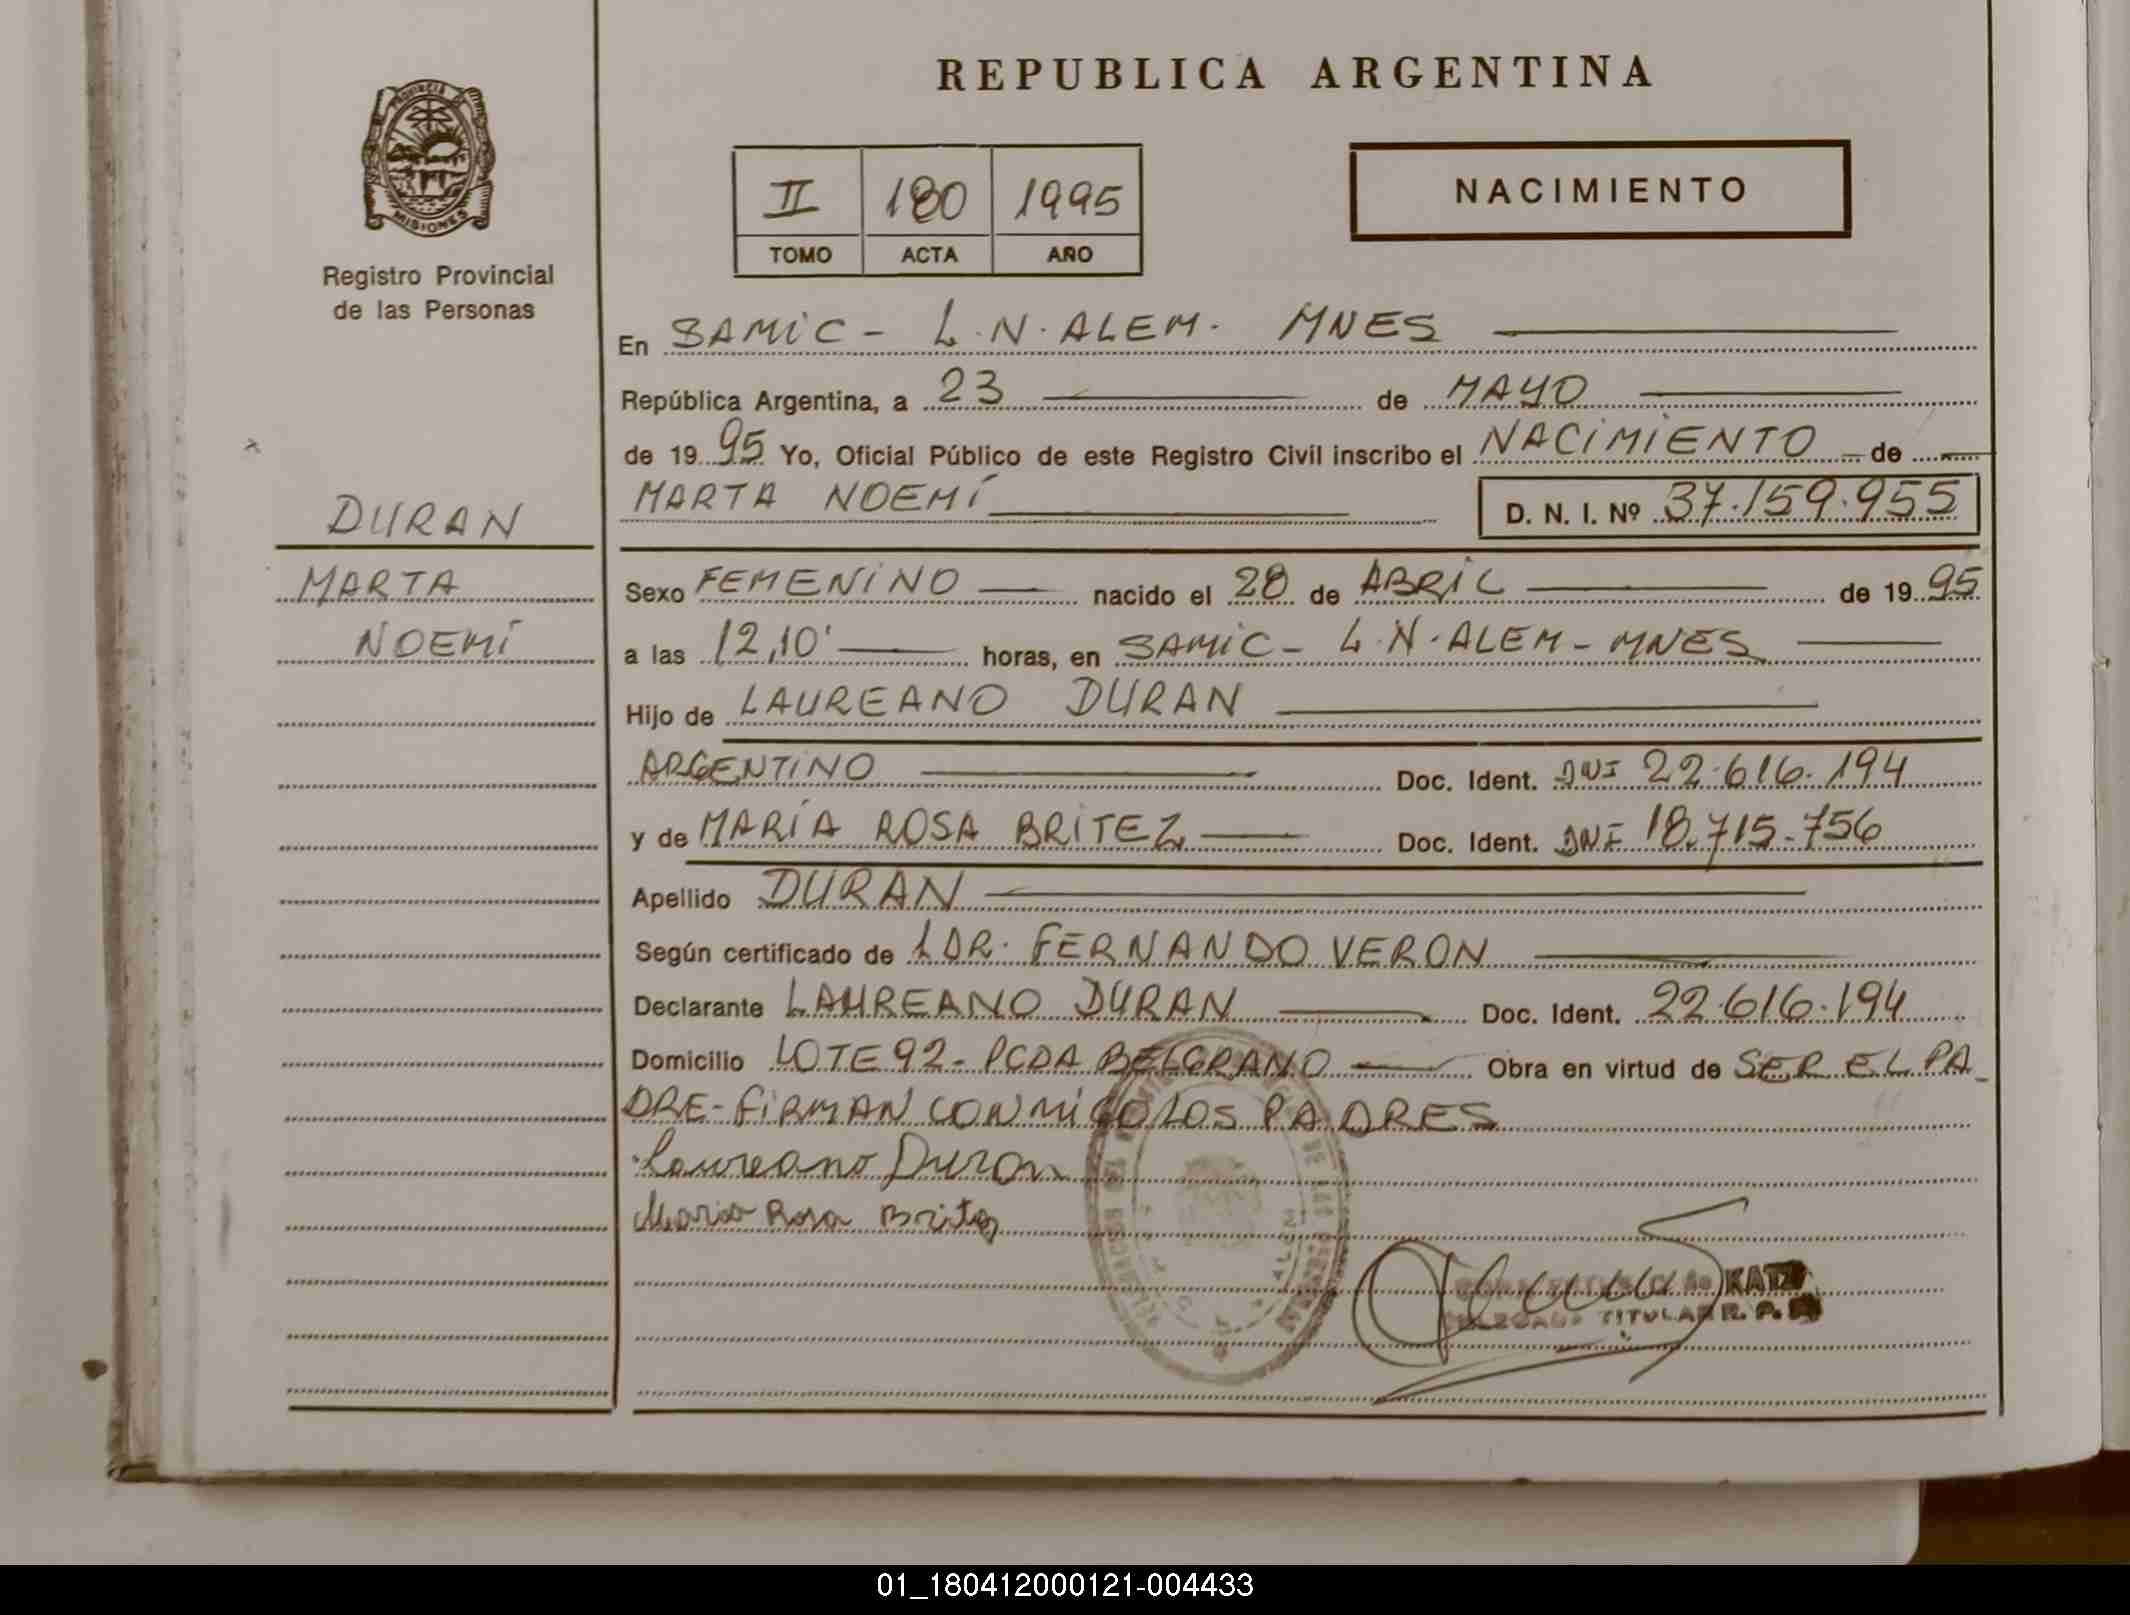 REPUBLICA ARGENTINA
PROVINCIA DE
MISIONES
Registro Provincial
de las Personas
II 180 1995
TOMO ACTA AÑO
NACIMIENTO
En SAMIC - L.N. ALEM. MNES
República Argentina, a 23 de MAYO
de 1995 Yo, Oficial Público de este Registro Civil inscribo el NACIMIENTO de
MARTA NOEMÍ D. N. I. Nº 37.159.955
DURAN
MARTA
NOEMÍ
Sexo FEMENINO nacido el 28 de ABRIL de 1995
a las 12,10' horas, en SAMIC - L.N. ALEM - MNES
Hijo de LAUREANO DURAN
ARGENTINO Doc. Ident. DNI 22.616.194
y de MARÍA ROSA BRITEZ Doc. Ident. DNI 18.715.756
Apellido DURAN
Según certificado de DR. FERNANDO VERON
Declarante LAUREANO DURAN Doc. Ident. 22.616.194
Domicilio LOTE 92 - PCDA BELGRANO Obra en virtud de SER EL PA
DRE - FIRMAN CONMIGO LOS PADRES
Laureano Duran
Maria Rosa Britez
KATZ
TITULAR R. P.
01_180412000121-004433